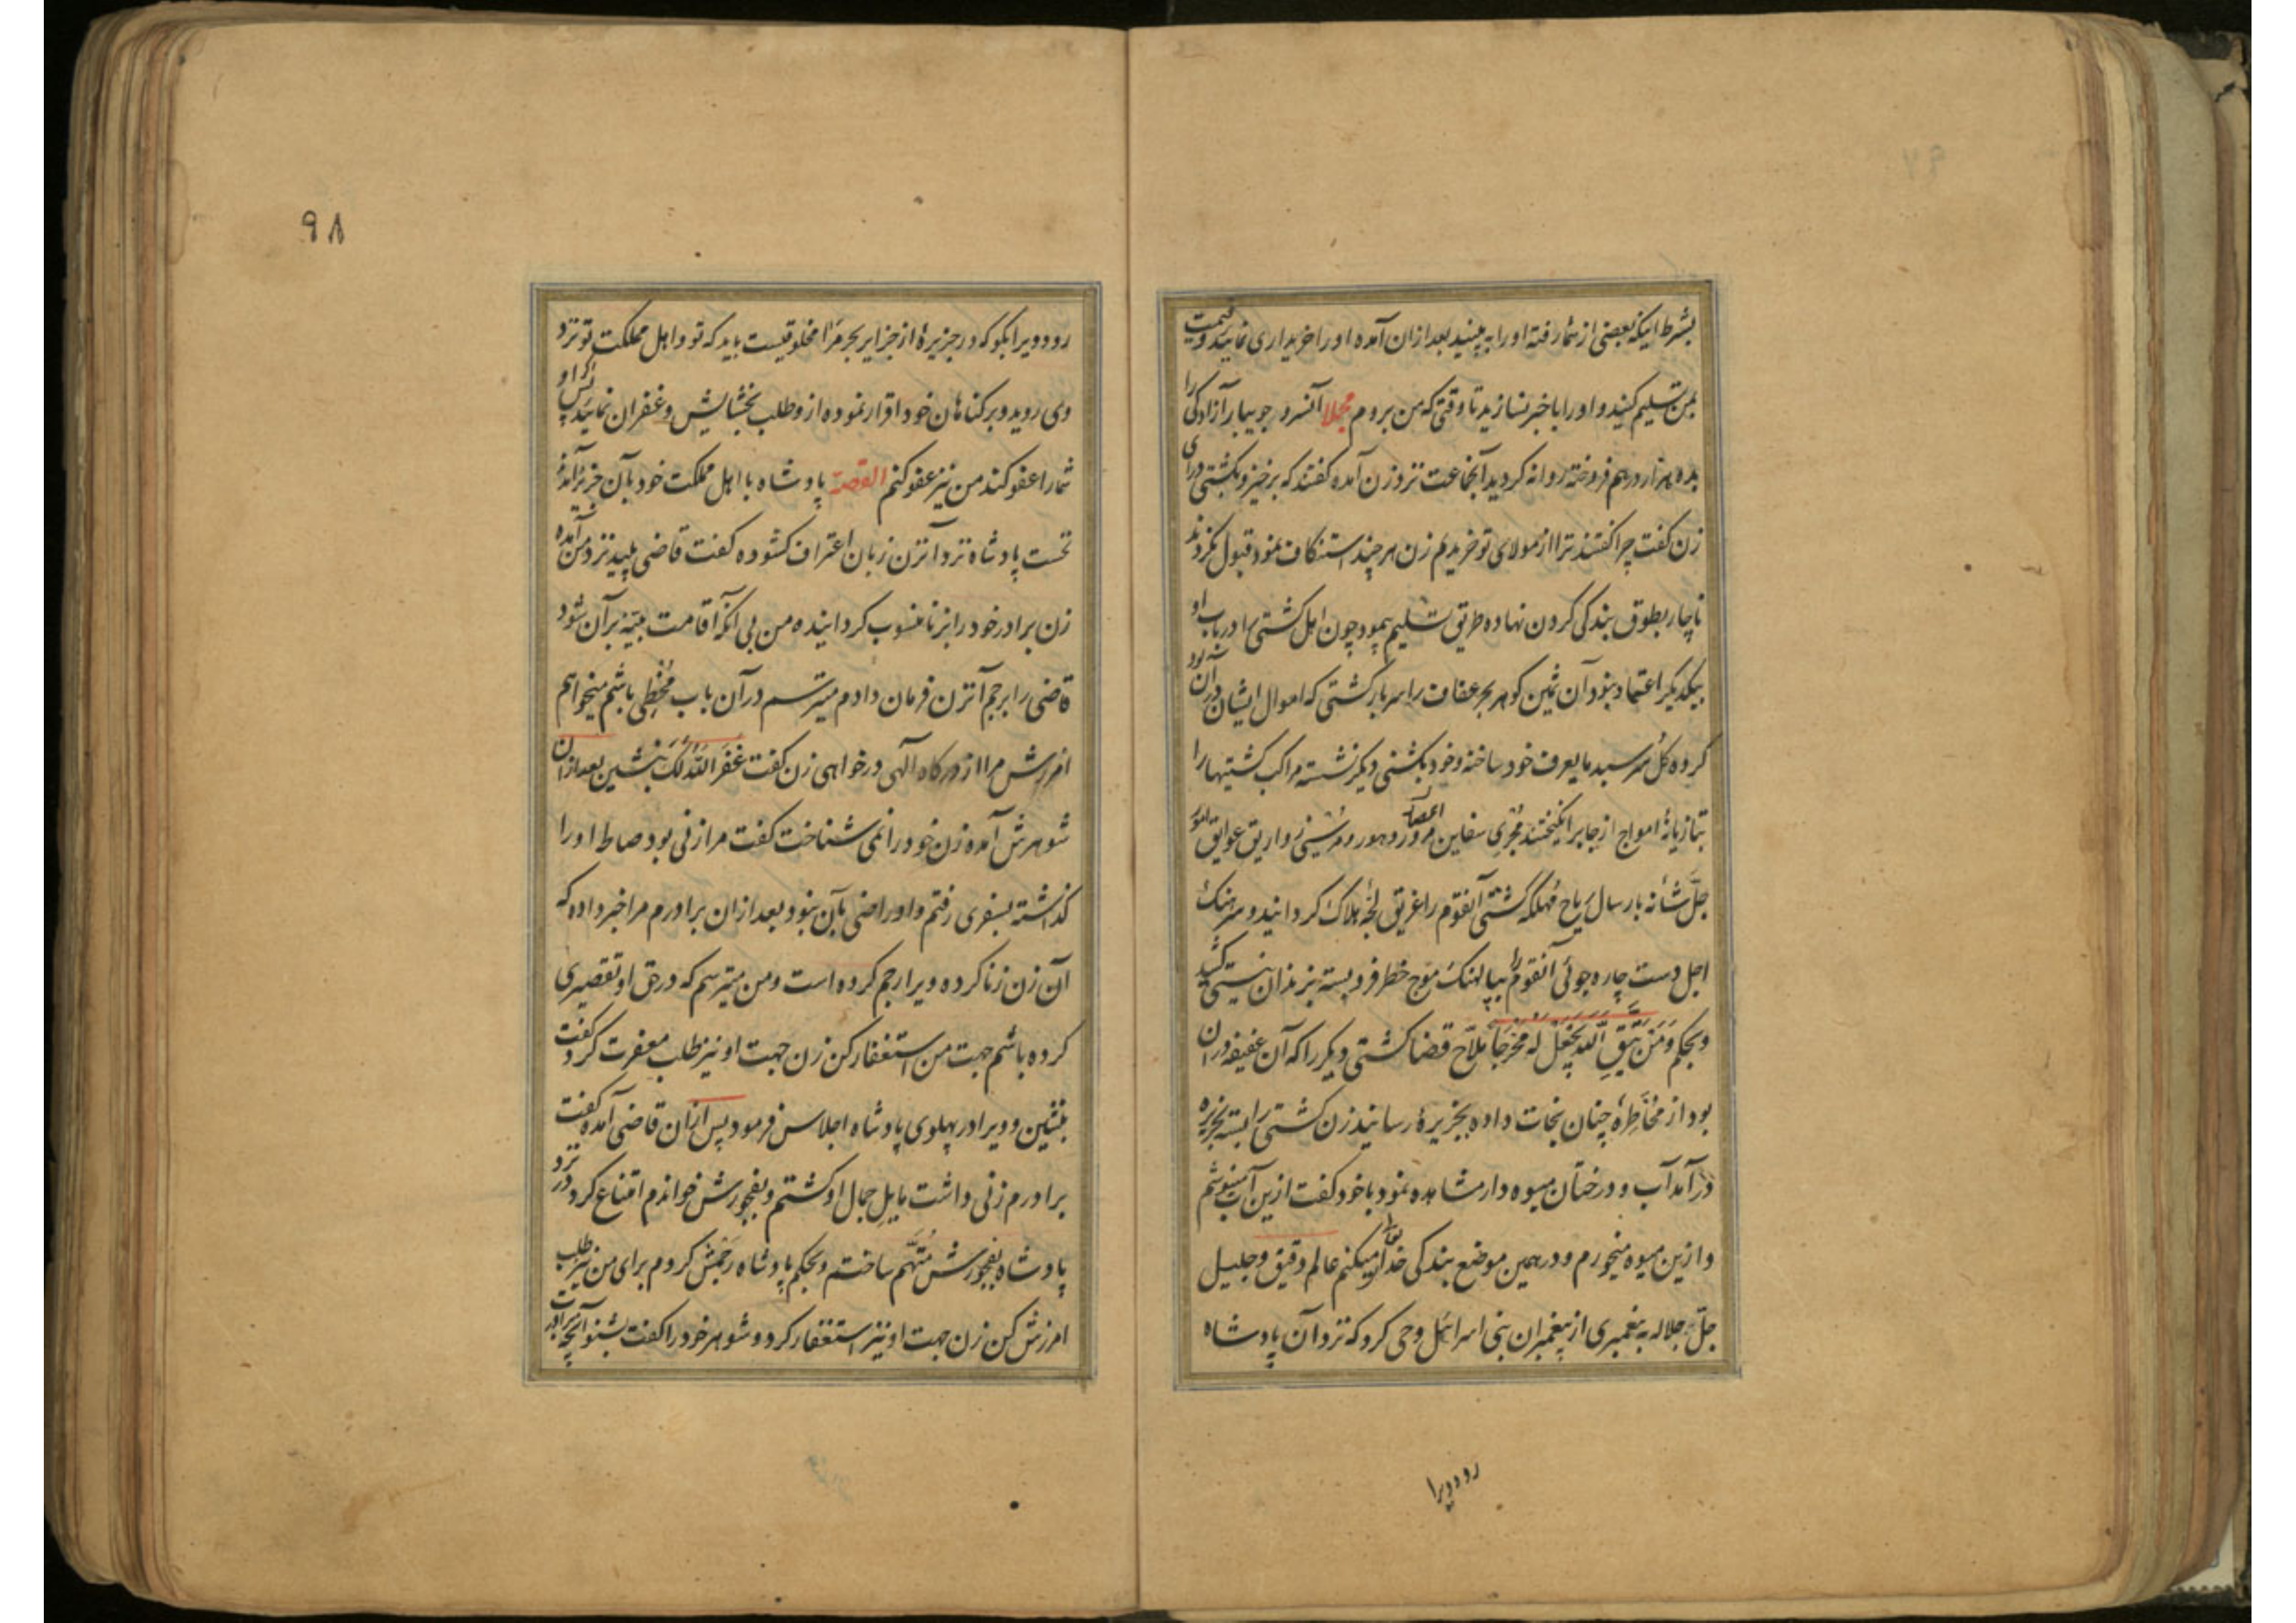 بشرط اینکه بعضی از شما رفته او را به بینید بعد از ان آمده او را خریداری نمایید و قیمت
بمن تسلیم کنید و او را با خبر نسازید تا وقتی که من بروم مجملا آنسرو جویبار آزادکی را
بده هزار درهم فروخته روانه کردید آنجماعت نزد زن آمده کفتند که برخیز و بکشتی درای
زن کفت چرا کفتند ترا از مولای تو خریدیم زن هر چند استنکاف نمود قبول نکردند
ناچار بطوق بندکی کردن نهاده طریق تسلیم پیمود چون اهل کشتی را در باب او
بیکدیکر اعتماد نبود آن ثمین کوهر بحر عفاف را سربار کشتی که اموال ایشان در آن بود
کرده کل سر سبد ما یعرف خود ساخته و خود بکشتی دیکر نشسته مراکب کشتیها را
بتازیانهٔ امواج از جا برانکیختند مجری سفاین مرور دهور و مرسی زواریق عوایق امور
جل شانه بارسال ریاح مهلکه کشتی آنقوم را غریق لجهٔ هلاک کردانید و سرهنک
اجل دست چاره جوئی آنقوم را بپالهنک موج خطر فرو بسته بزندان نیستی کشید
و بحکم وَمَنْ یَتَّقِ اللّهَ یَجْعَلْ لَهُ مَخْرَجاً ملاح قضا کشتی دیکر را که آن عفیفه در ان
بود از مخاطرهٔ چنان نجات داده بجزیرهٔ رسانید زن کشتی را بسته بجزیره
در آمد آب و درختان میوه دار مشاهده نمود با خود کفت ازین آب مینوشم
و ازین میوه میخورم و در همین موضع بندکی خدا را میکنم عالم دقیق و جلیل
جل جلاله به پغمبری از پیغمبران بنی اسرائل وحی کرد که نزد آن پادشاه
رو و ویرا
۹۸
رو و ویرا بکو که در جزیرهٔ از جزایر بحر مرا مخلوقیست باید که تو و اهل مملکت تو نزد
وی روید و بر کناهان خود اقرار نموده از و طلب بخشایش و غفران نمایید پس اکر او
شما را عفو کند من نیز عفو کنم القصه پادشاه با اهل مملکت خود بآن جزیره آمدند
نخست پادشاه نزد آنزن زبان اعتراف کشوده کفت قاضی پیید نزد من آمده
زن برادر خود را بزنا منسوب کردانیده من بی آنکه اقامت بینه بر آن شود
قاضی را برجم آنزن فرمان دادم میترسم در آن باب مخطی باشم میخواهم
امرزش مرا از درکاه آلهی درخواهی زن کفت غَفَرَ اللّهُ لَکَ بنشین بعد از ان
شوهرش آمده زن خود را نمی شناخت کفت مرا زنی بود صاط او را
کذاشته بسفری رفتم و او راضی بآن نبود بعد از ان برادرم مرا خبر داده که
آن زن زنا کرده ویرا رجم کرده است و من میترسم که در حق او تقصیری
کرده باشم جهت من استغفار کن زن جهت او نیز طلب مغفرت کرد کفت
بنشین و ویرا در پهلوی پادشاه اجلاس فرمود پس از ان قاضی آمده کفت
برادرم زنی داشت مایل جمال او کشتم و بفجورش خواندم امتناع کرد در نزد
پادشاه بفجورش متهم ساختم و بحکم پادشاه رجمش کردم برای من نیز طلب
امرزش کن زن جهت او نیز استغفار کرد و شوهر خود را کفت بشنو آنچه برادرت